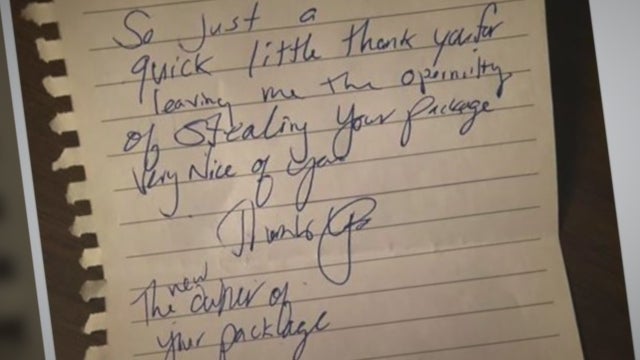 So just a
quick little thank you for
leaving me the opernilty
of stealing your package
very Nice of you
Thanks
new
The owner of
your package